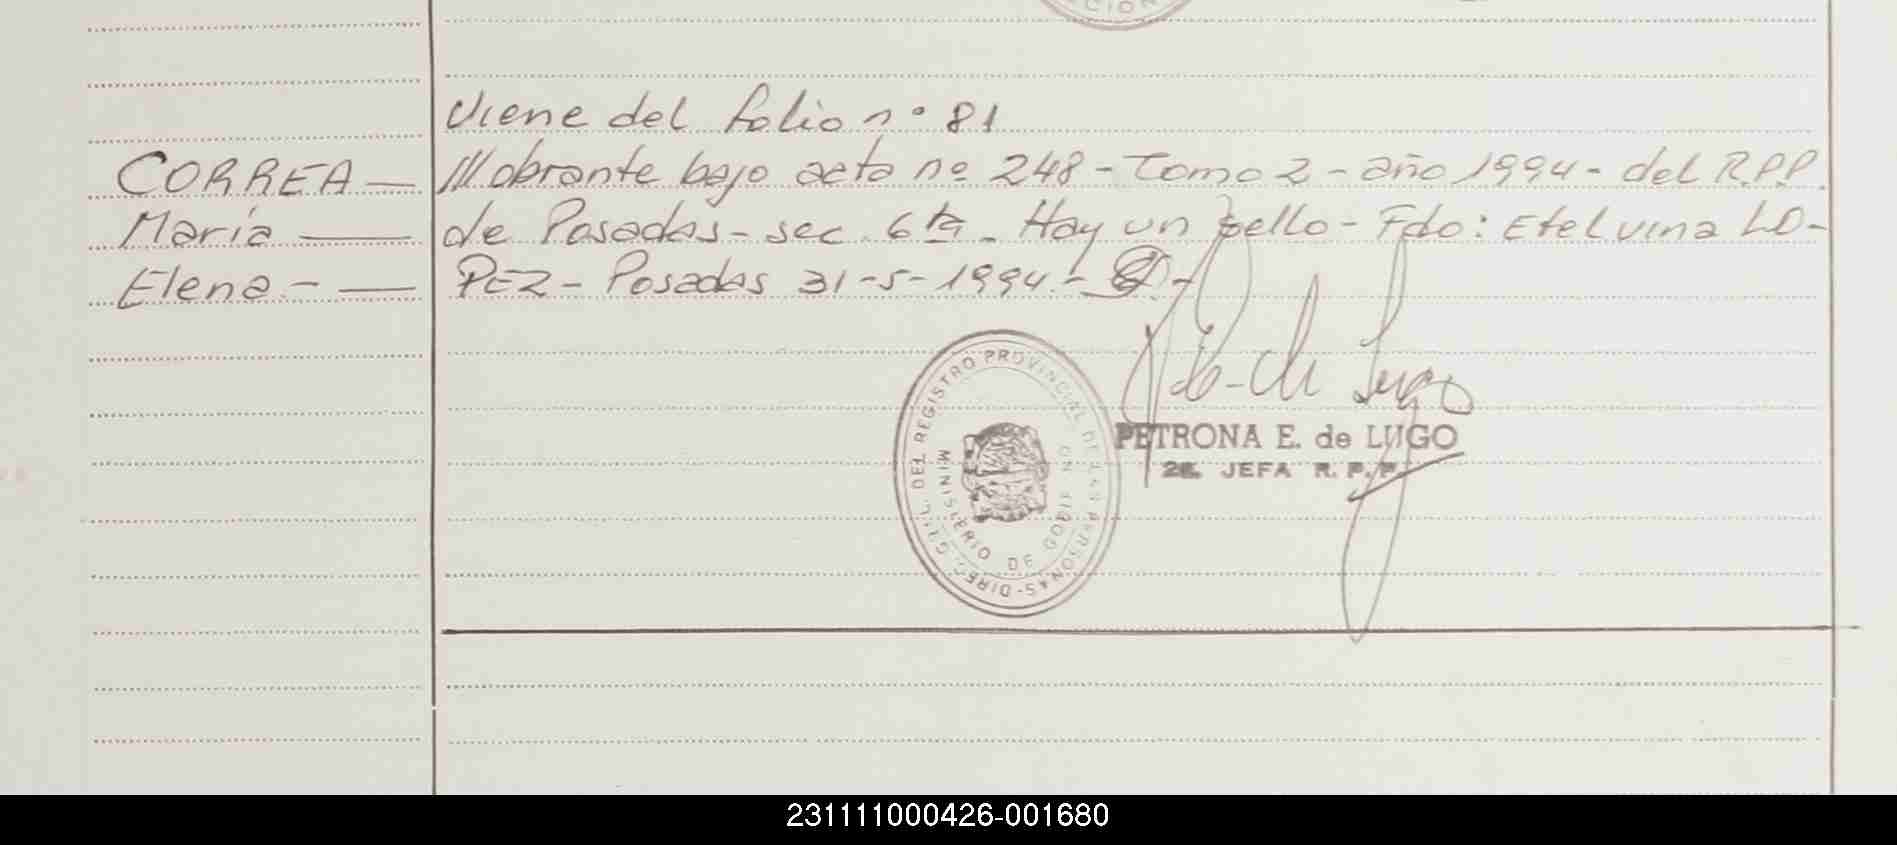 CION
Viene del folio nº 81
CORREA —
María —
Elena - —
///obrante bajo acta nº 248 - Tomo 2 - año 1994 - del R.P.P.
de Posadas - sec. 6ta. Hay un sello - Fdo: Etelvina LO-
PEZ - Posadas 31-5-1994.-
P. E. de Lugo
DIREC. GRAL. DEL REGISTRO PROVINCIAL DE LAS PERSONAS -
MINISTERIO DE GOBIERNO
PETRONA E. de LUGO
2a. JEFA R. P. P.
231111000426-001680